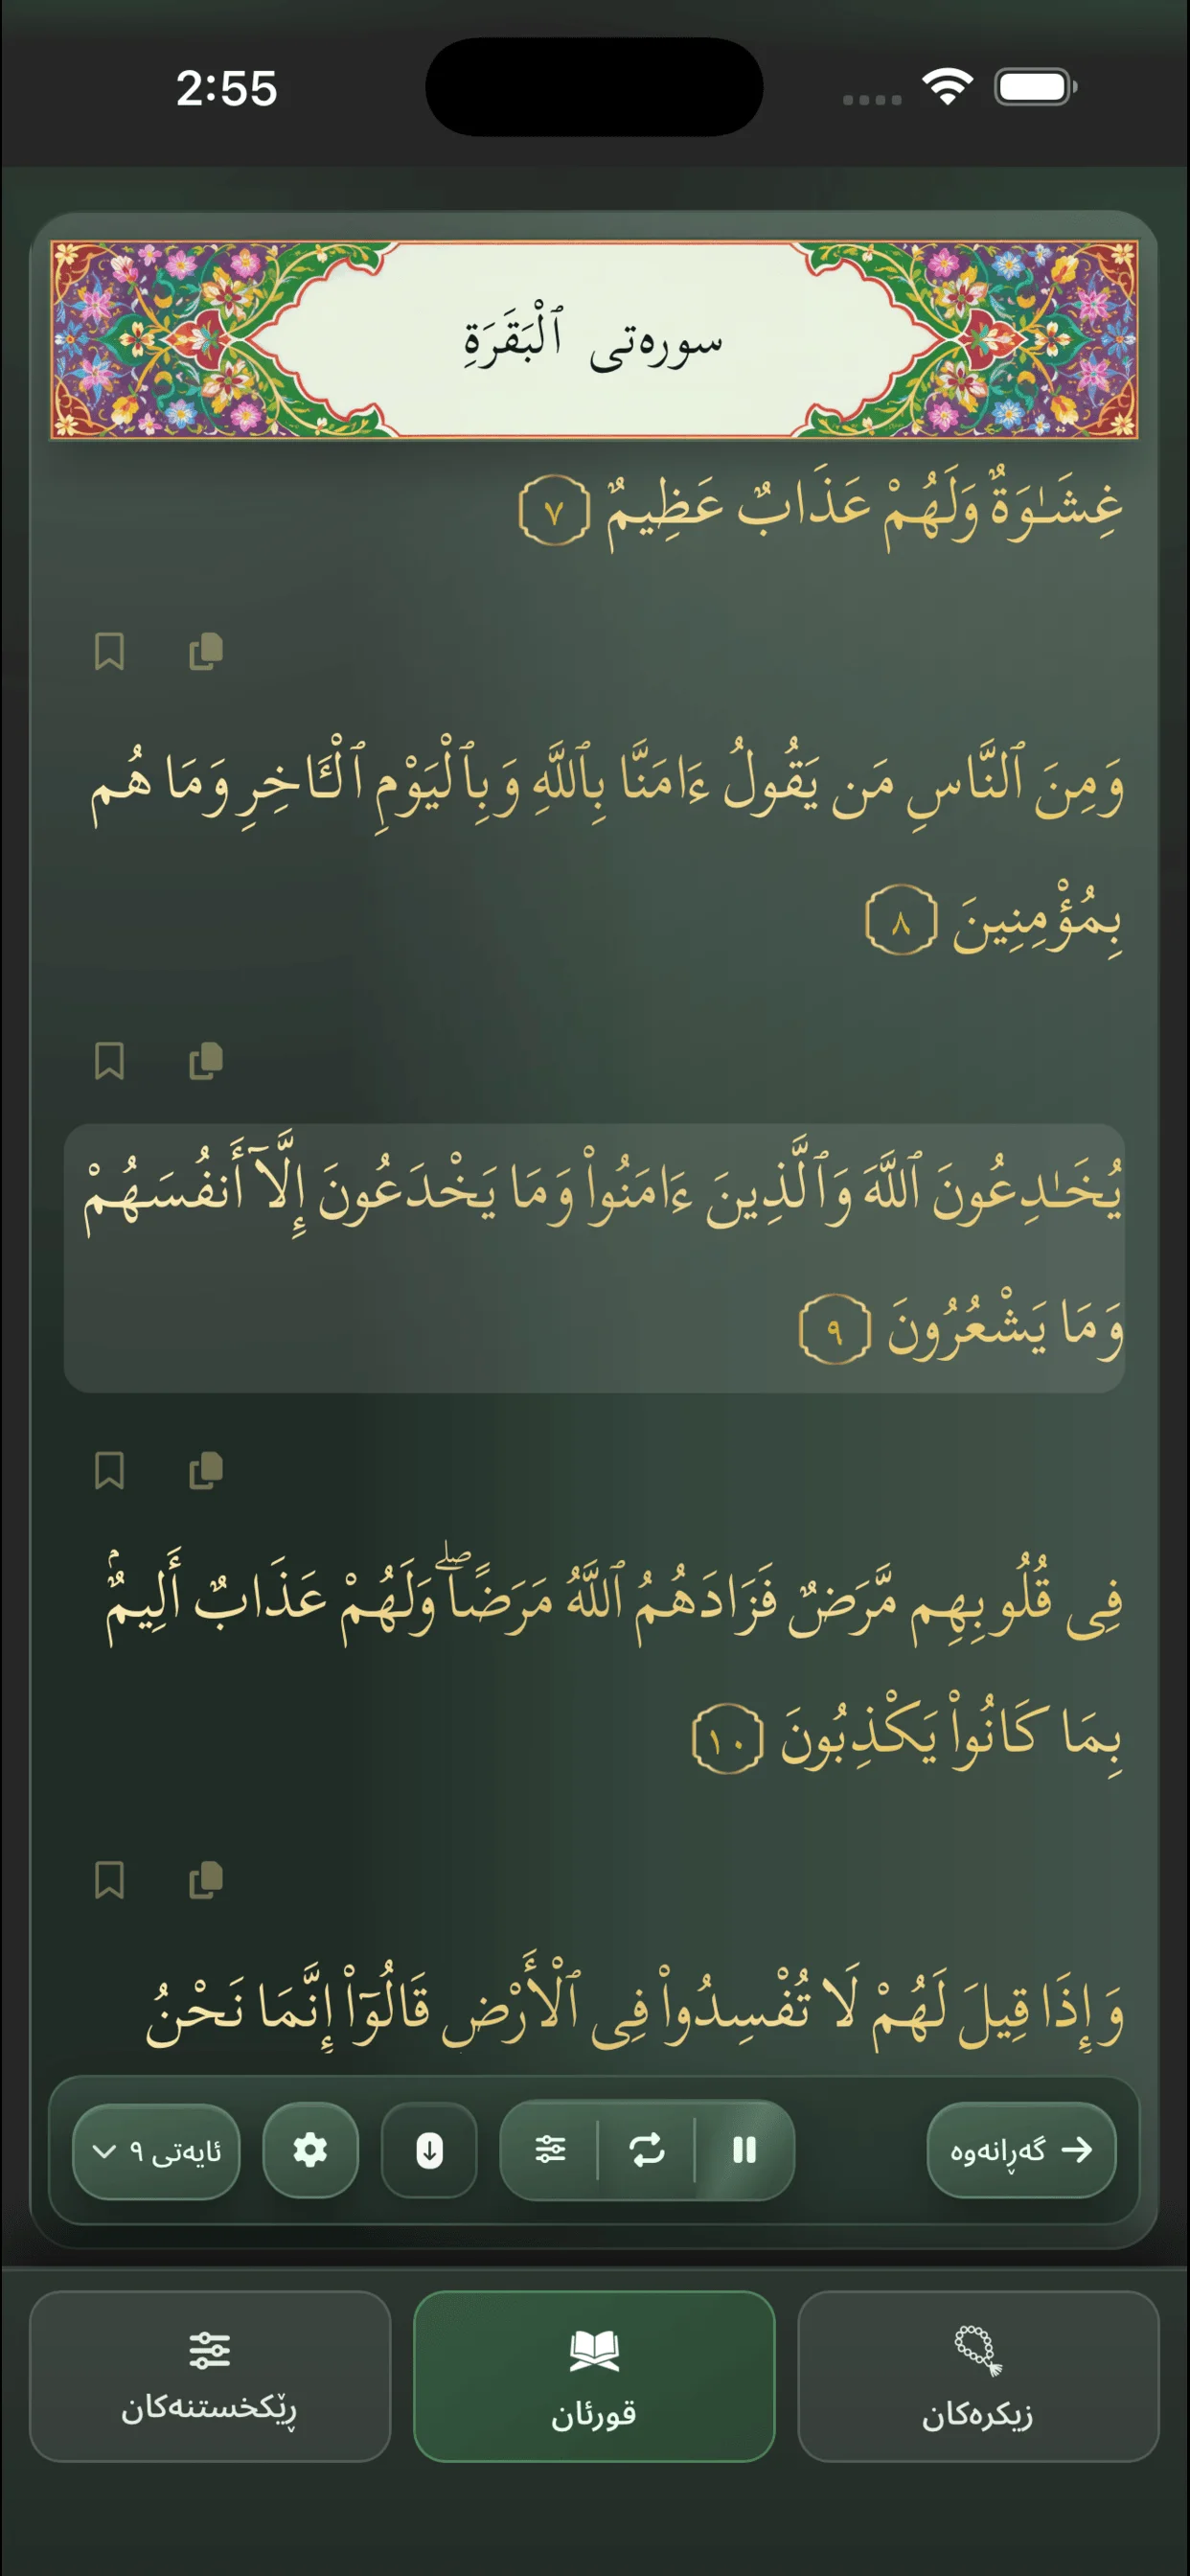 2:55
سورەتی ٱلْبَقَرَةِ
غِشَـٰوَةٌ وَلَهُمْ عَذَابٌ عَظِيمٌ ٧
وَمِنَ ٱلنَّاسِ مَن يَقُولُ ءَامَنَّا بِٱللَّهِ وَبِٱلْيَوْمِ ٱلْـَٔاخِرِ وَمَا هُم
بِمُؤْمِنِينَ ٨
يُخَـٰدِعُونَ ٱللَّهَ وَٱلَّذِينَ ءَامَنُوا۟ وَمَا يَخْدَعُونَ إِلَّآ أَنفُسَهُمْ
وَمَا يَشْعُرُونَ ٩
فِى قُلُوبِهِم مَّرَضٌ فَزَادَهُمُ ٱللَّهُ مَرَضًا ۖ وَلَهُمْ عَذَابٌ أَلِيمٌۢ
بِمَا كَانُوا۟ يَكْذِبُونَ ١٠
وَإِذَا قِيلَ لَهُمْ لَا تُفْسِدُوا۟ فِى ٱلْأَرْضِ قَالُوٓا۟ إِنَّمَا نَحْنُ
گەڕانەوە
ئایەتی ٩
زیکرەکان
قورئان
ڕێکخستنەکان